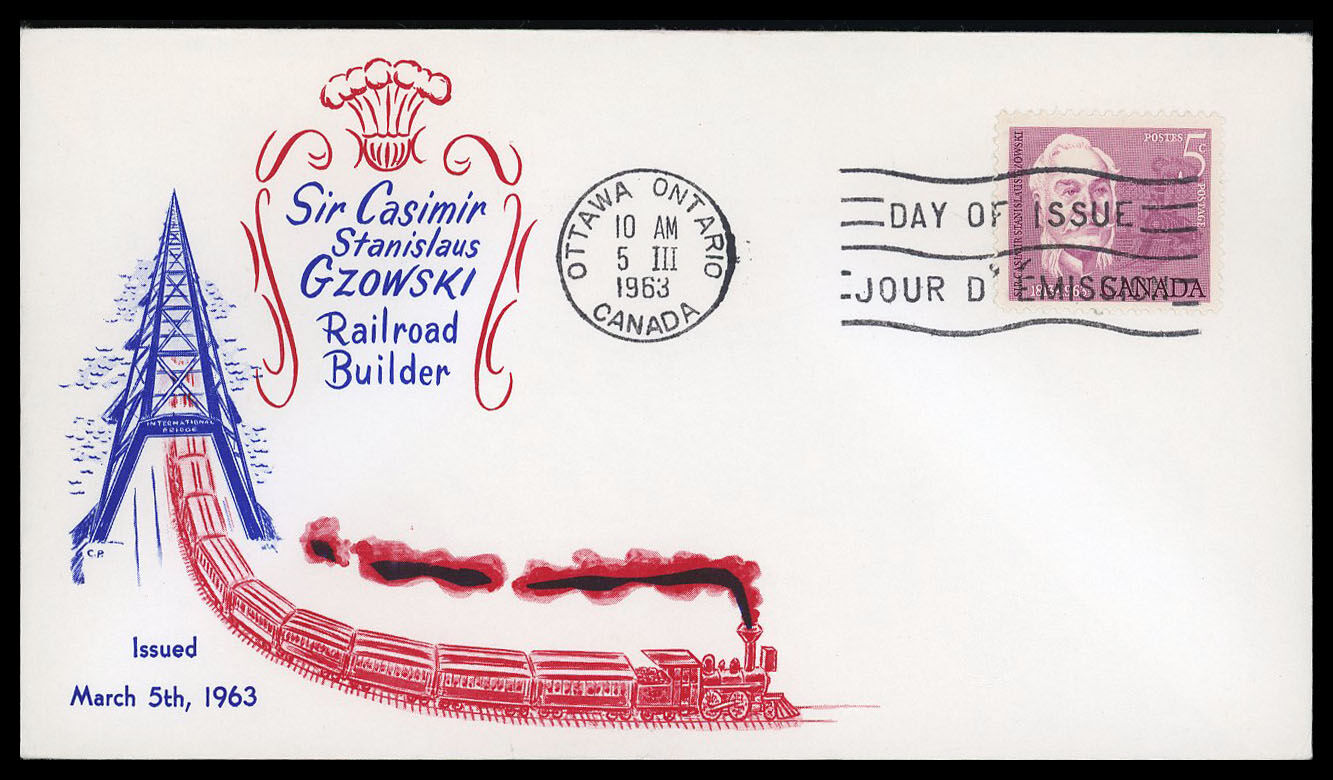 Sir Casimir
Stanislaus
GZOWSKI
Railroad
Builder
OTTAWA ONTARIO
10 AM
5 III
1963
CANADA
POSTES 5c
POSTAGE
SIR CASIMIR STANISLAUS GZOWSKI
1813-1963
CANADA
DAY OF ISSUE
JOUR D'ÉMISSION
INTERNATIONAL
BRIDGE
C.P.
Issued
March 5th, 1963